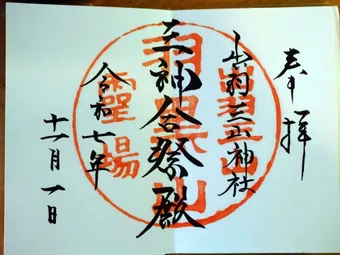 奉拝
出羽三山神社
三神合祭殿
令和七年
十一月一日
出羽三山
羽黒山
霊場